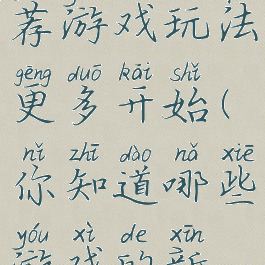 荐游戏玩法
gēng duō kāi shǐ
更多开始(
nǐ zhī dào nǎ xiē
你知道哪些
yóu xì de xīn
游戏的新